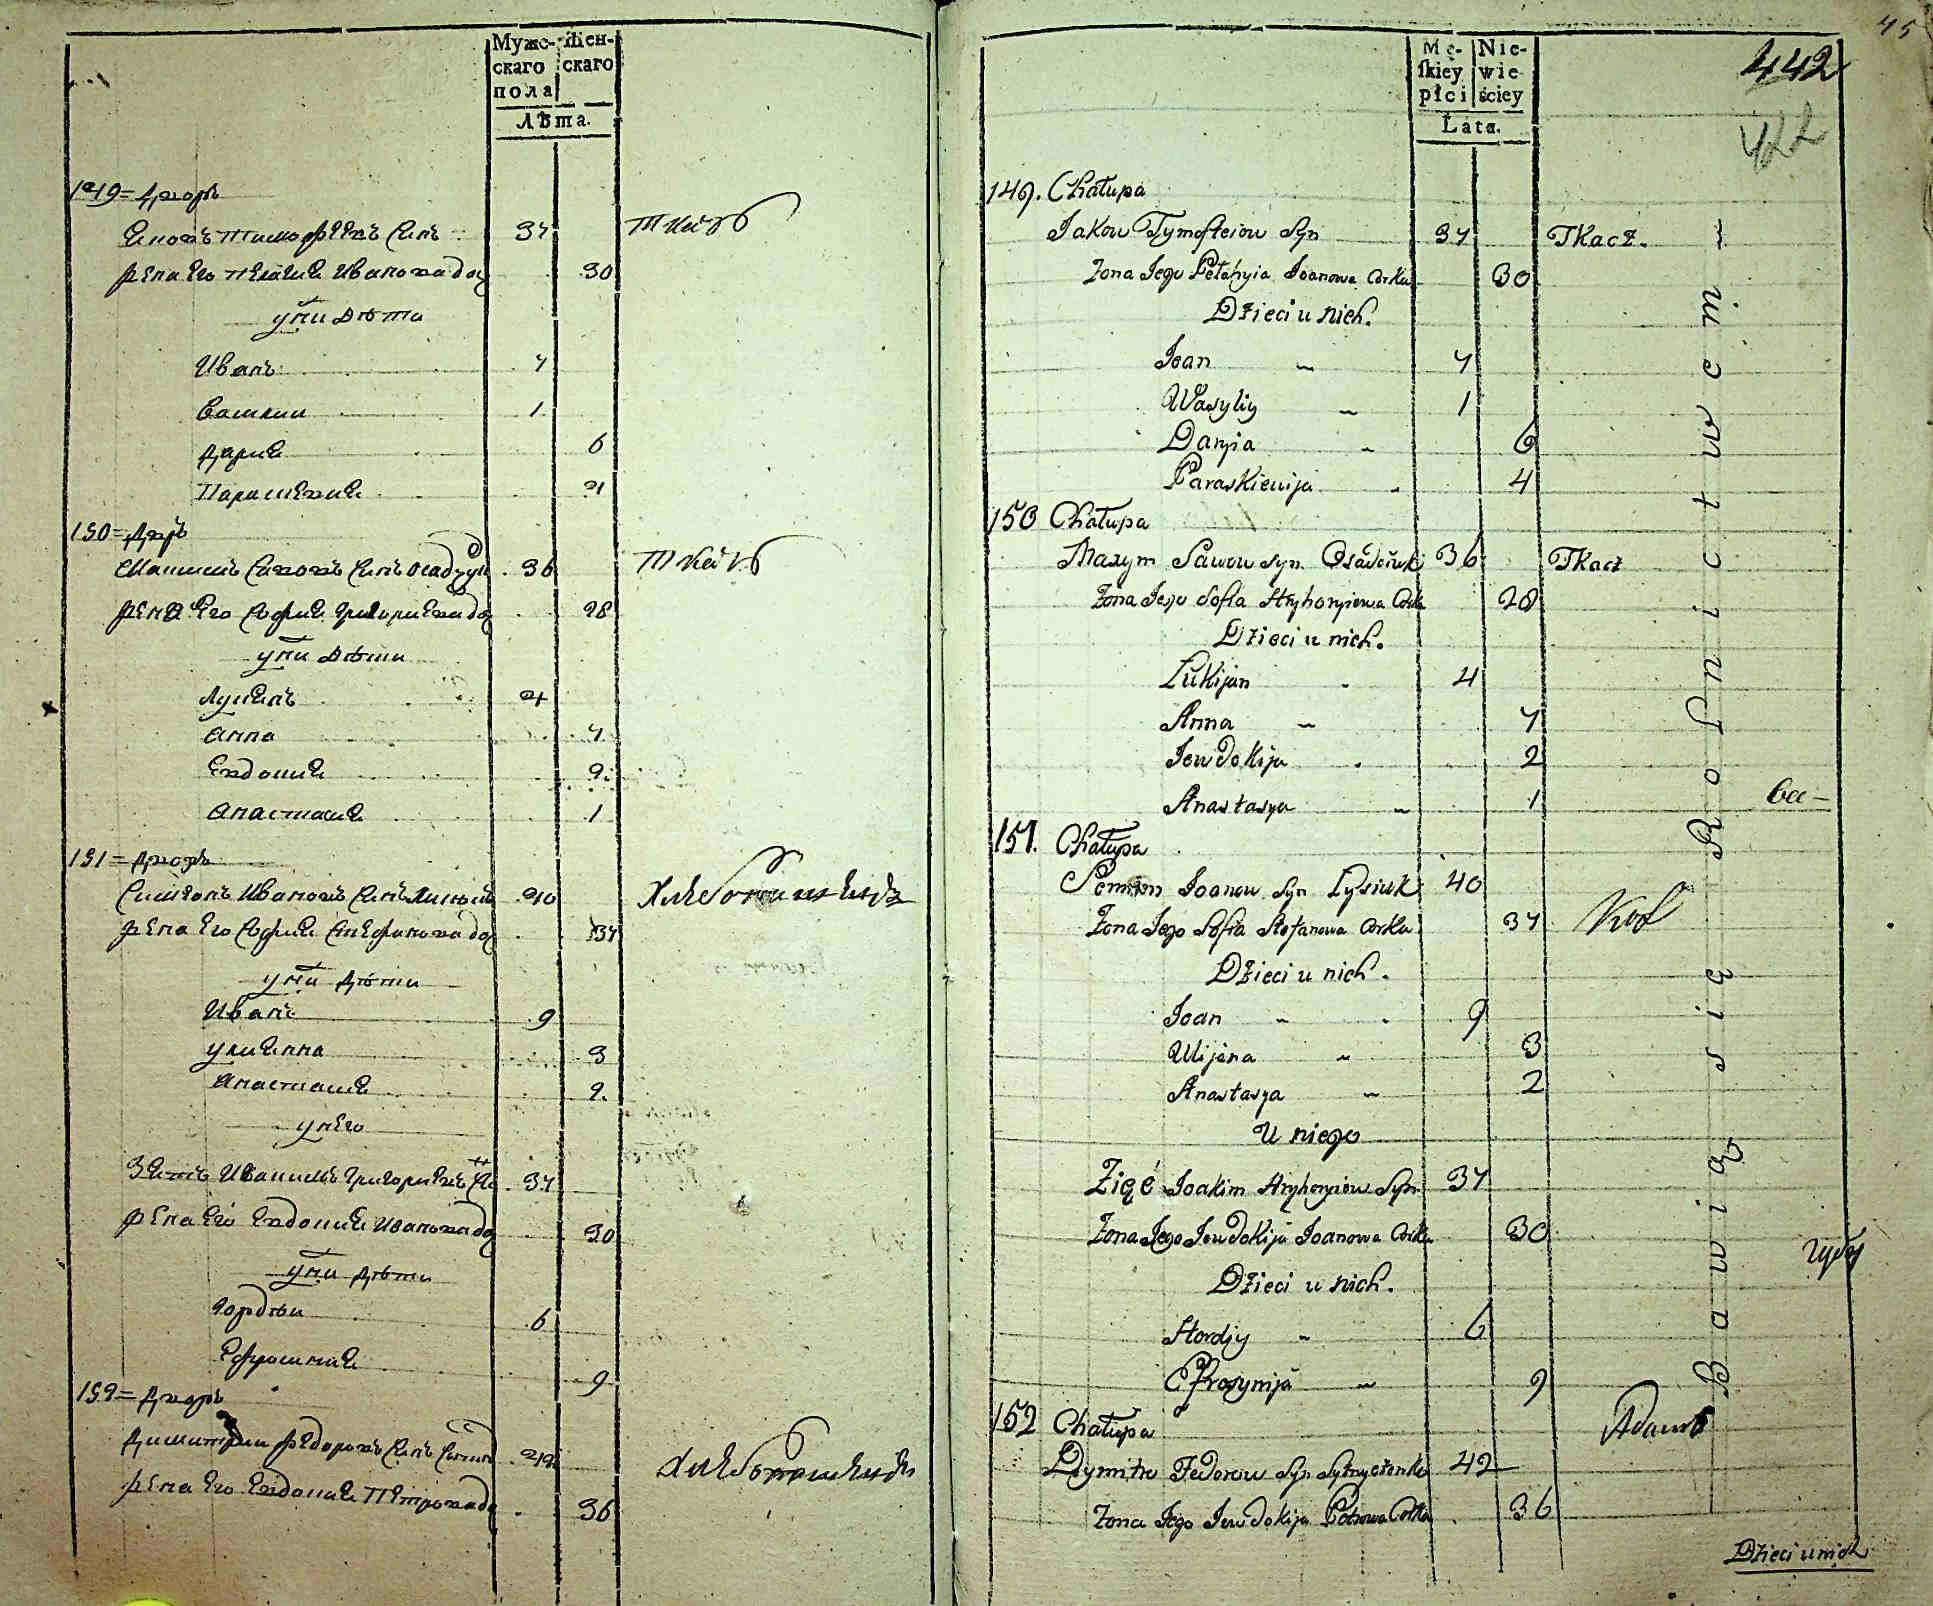 Муже-
скаго
пола
Жен-
скаго
Лѣта.
149= Дворъ
Яковъ Тимофѣевъ Синъ 37 ткачъ
Жена Его Пелагия Иванова до 30
у них Дѣти
Иванъ 7
Василий 1
Дария 6
Параскевия 4
150= Дворъ
Максимъ Савовъ Синъ Осадчук 36 ткачъ
Жена Его София Григориева до 28
у них Дѣти
Лукиянъ 4
Анна 7
Евдокия 2
Анастасия 1
151= Дворъ
Симеонъ Ивановъ Синъ Лисюкъ 40 Хлебопашецъ
Жена Его София Стефанова до 37
у них Дѣти
Иванъ 9
Улиянна 3
Анастасия 2
у него
Зять Иоакимъ Григориевъ Си 37
Жена Его Евдокия Иванова до 30
у них Дѣти
Гордѣй 6
Ефросиния 9
152= Дворъ
Димитрий Федоровъ Синъ 42 Хлебопашецъ
Жена Его Евдокия Петрова до 36
45
442
422
Mę-
skiey
płci
Nie-
wie-
ściey
Lata.
149. Chałupa
Jakow Tymofteiow Syn 37 Tkacz.
Żona Jego Pełahyia Joanowa Corka 30
Dzieci u nich.
Joan 7
Wasyliy 1
Daryia 6
Paraskiewija 4
150 Chałupa
Maxym Sawow syn Osadczuk 36 Tkacz
Żona Jego Sofia Hryhoryiewa Corka 28
Dzieci u nich.
Łukijan 4
Anna 7
Jewdokija 2
Anastasya 1
151. Chałupa
Semion Joanow Syn Łysiuk 40
Żona Jego Sofia Stefanowa Corka 37
Dzieci u nich.
Joan 9
Ulijana 3
Anastasya 2
U niego
Zięć Joakim Hryhoryiow Syn 37
Żona Jego Jewdokija Joanowa Corka 30
Dzieci u nich.
Hordiy 6
Efrosynija 9
152 Chałupa
Dymitr Fedorow Syn 42
Żona Jego Jewdokija Petrowa Corka 36
Bawią się Rolnictwem
Dzieci u nich